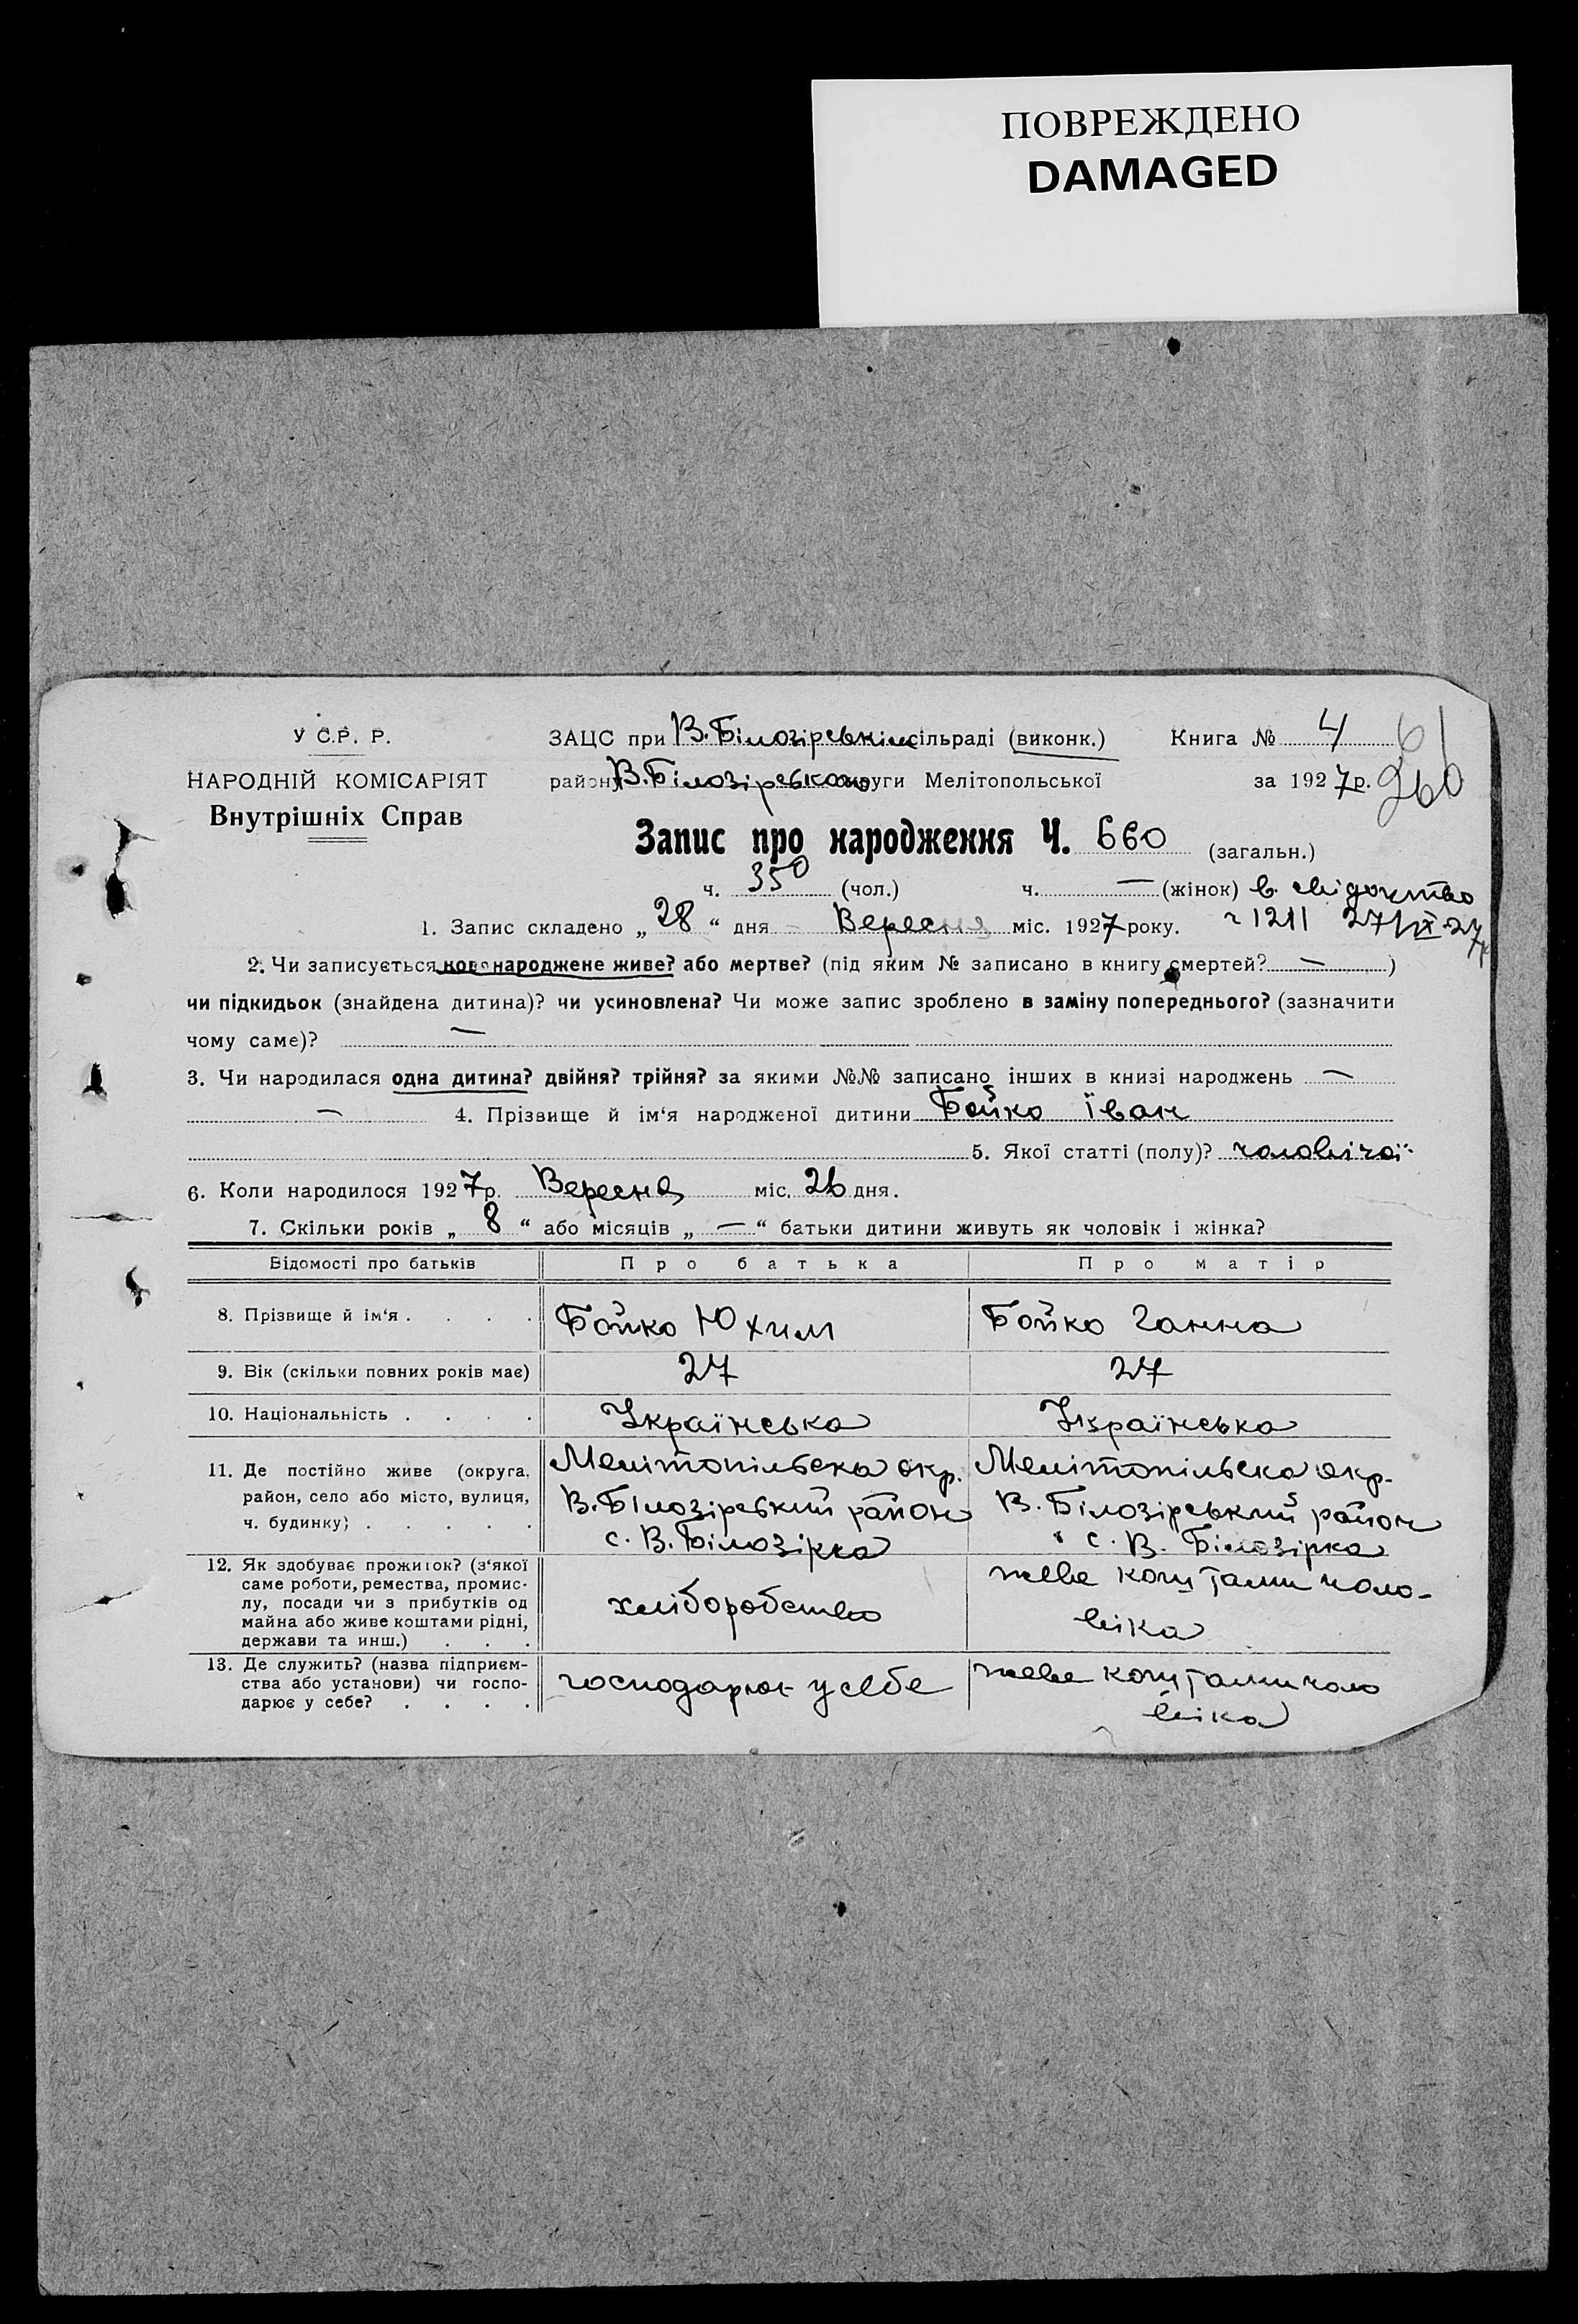 ПОВРЕЖДЕНО
DAMAGED
У С.Р. Р.
НАРОДНІЙ КОМІСАРІЯТ
Внутрішніх Справ
ЗАЦС при В.Білозірськім сільраді (виконк.)
Книга № 4
61
району В.Білозірського округи Мелітопольської
за 1927р.
260
Запис про народження Ч. 660 (загальн.)
ч. 350 (чол.) ч. — (жінок) в. свідоцтво
1. Запис складено „28“ дня Вересня міс. 1927 року. ч 1211 27/IX-27
2. Чи записується новонароджене живе? або мертве? (під яким № записано в книгу смертей? — )
чи підкидьок (знайдена дитина)? чи усиновлена? Чи може запис зроблено в заміну попереднього? (зазначити
чому саме)? —
3. Чи народилася одна дитина? двійня? трійня? за якими №№ записано інших в книзі народжень —
— 4. Прізвище й ім‘я народженої дитини Бойко Їван
5. Якої статті (полу)? чоловічої
6. Коли народилося 1927р. Вересня міс. 26 дня.
7. Скільки років „ 8 “ або місяців „ — “ батьки дитини живуть як чоловік і жінка?
Відомості про батьків Про батька Про матір
8. Прізвище й ім‘я . . . . Бойко Юхим Бойко Ганна
9. Вік (скільки повних років має) 27 27
10. Національність . . . . Українська Українська
11. Де постійно живе (округа, район, село або місто, вулиця, ч. будинку) . . . . .
Мелітопільська окр.
В.Білозірський район
с. В.Білозірка
Мелітопільска окр.
В. Білозірський район
с. В. Білозірка
12. Як здобуває прожиток? (з‘якої
саме роботи, ремества, промис-
лу, посади чи з прибутків од
майна або живе коштами рідні,
держави та инш.) . . .
хліборобство
живе коштами чоло-
віка
13. Де служить? (назва підприєм-
ства або установи) чи госпо-
дарює у себе? . . . .
господарює у себе
живе коштами чоло
віка